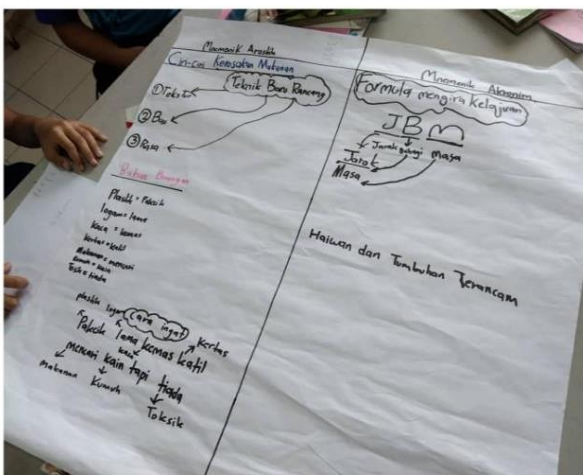 Mnemonik Akrostik
Ciri-ciri Kerosakan Makanan
Teknik Baru Rancang
① Tekstur
② Bau
③ Rasa
Bahan Buangan
Plastik = Pakcik
logam = lama
kaca = kemas
kertas = katil
makanan = mencari
kumuh = kain
Toksik = tiada
plastik logam
Cara ingat
kertas
Pakcik lama kemas katil
kaca
mencari kain tapi tiada
makanan
Kumuh
Toksik
Mnemonik Akronim
Formula mengira kelajuan
JBM
Jarak bahagi masa
Jarak
Masa
Haiwan dan Tumbuhan Terancam